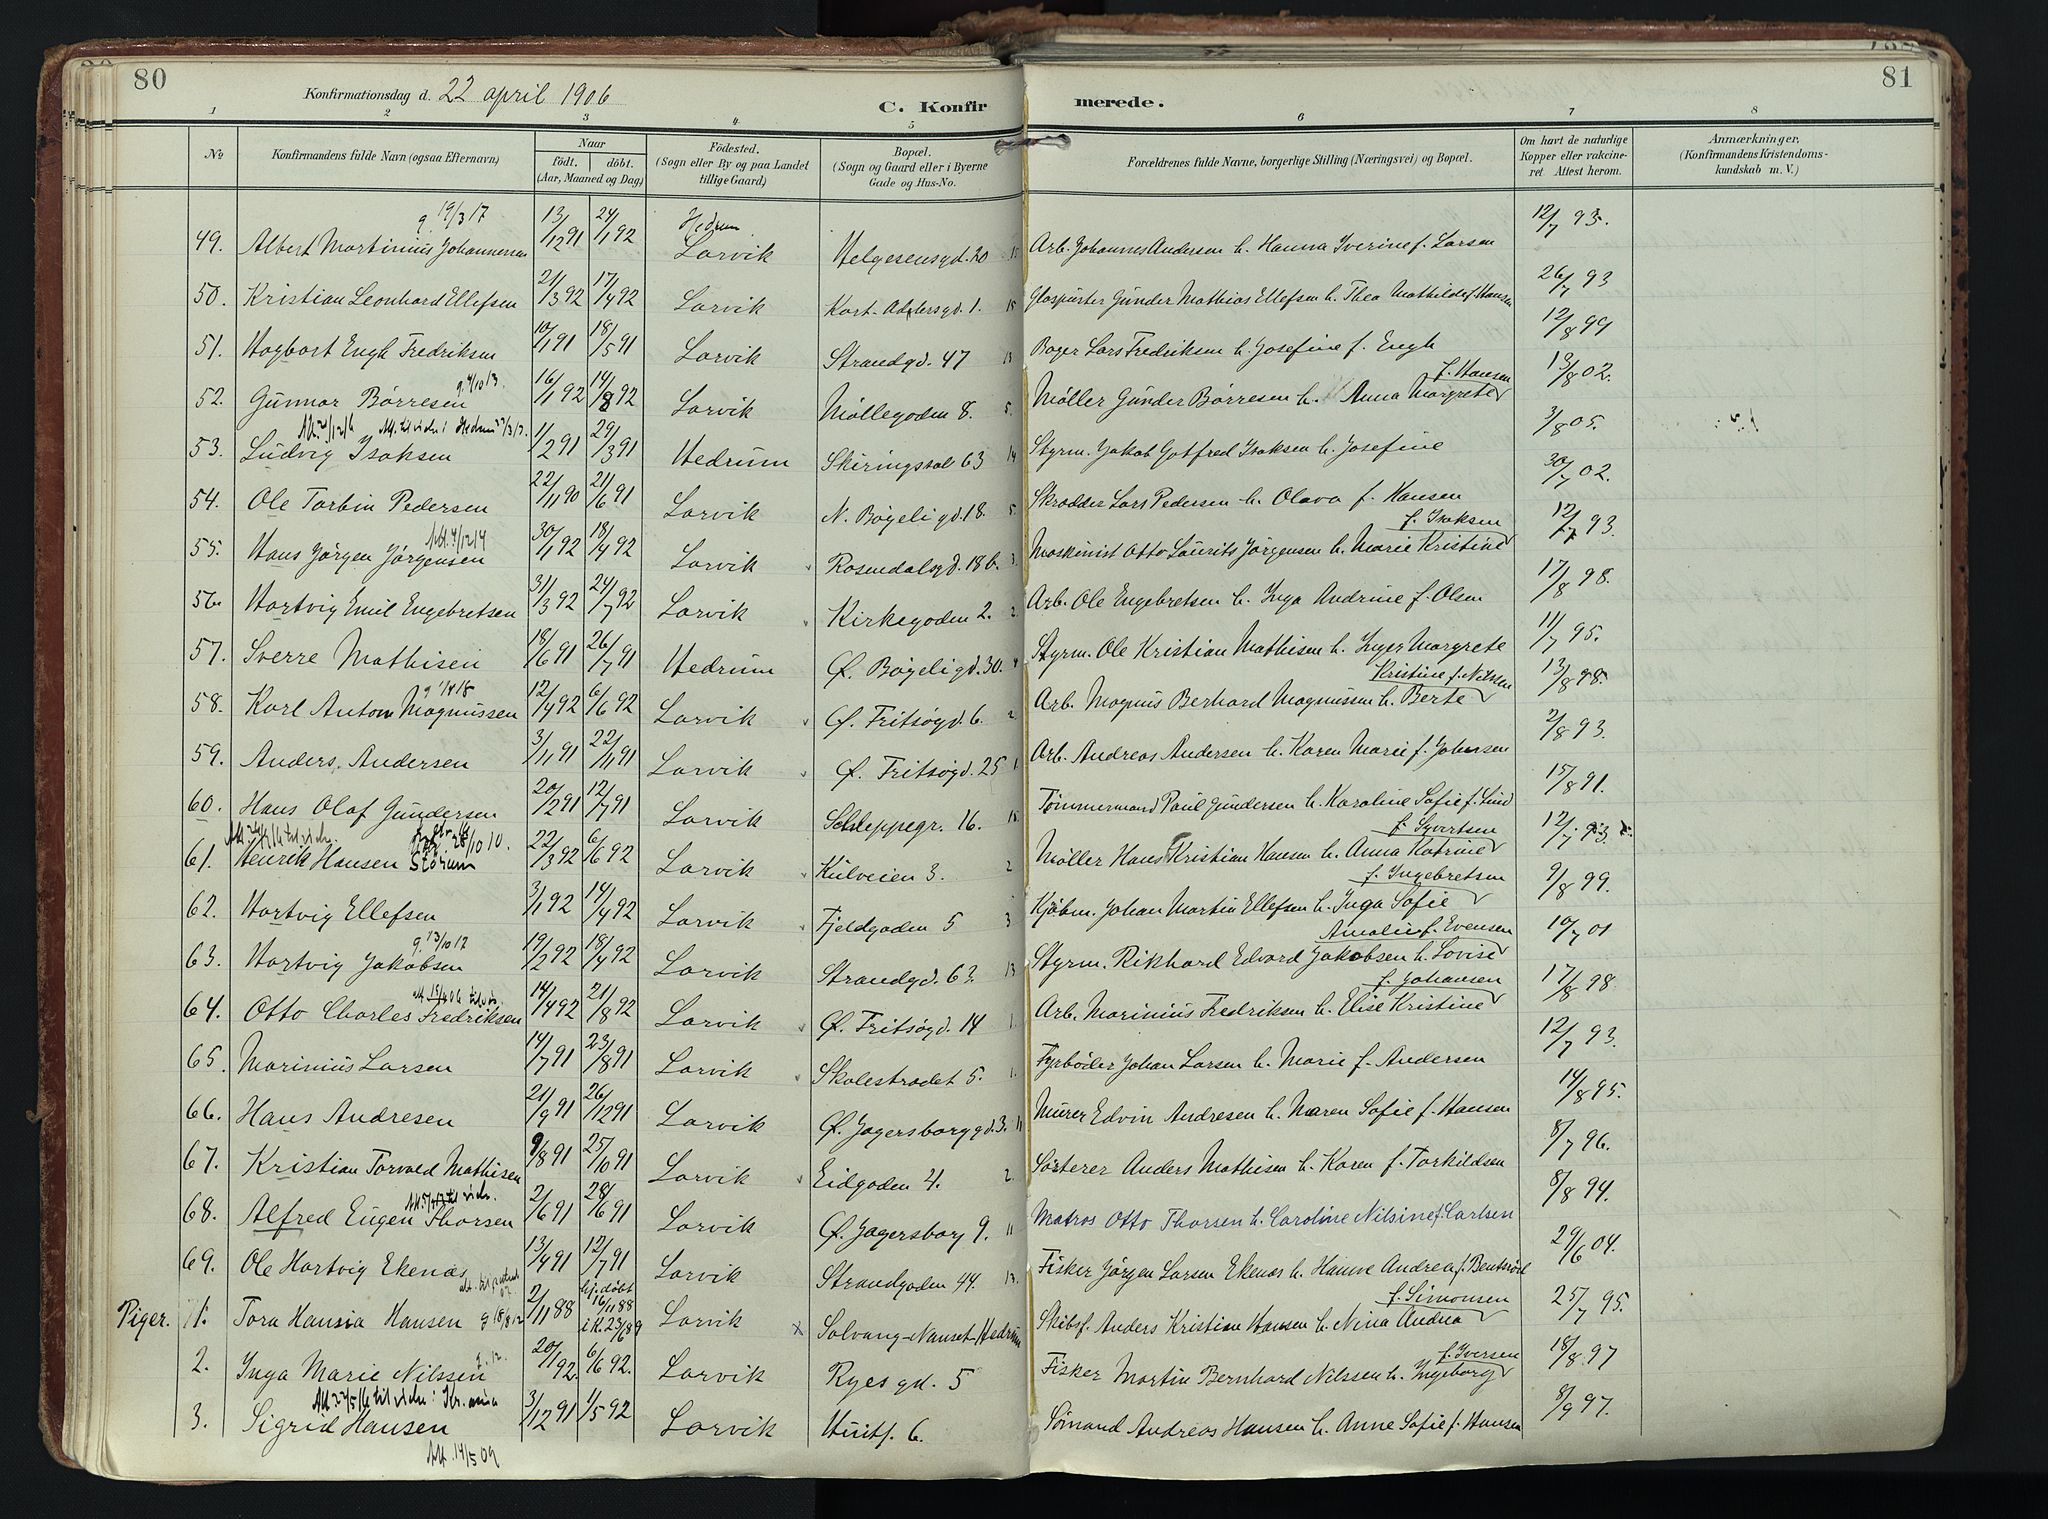 80
Konfirmationsdag d. 22 april 1906
C. Konfir merede.
81
1 2 3 4 5 6 7 8
No
Konfirmandens fulde Navn (ogsaa Efternavn)
Naar
födt. döbt.
(Aar, Maaned og Dag)
Födested.
(Sogn eller By og paa Landet
tillige Gaard)
Bopæl.
(Sogn og Gaard eller i Byerne
Gade og Hus-No.
Forældrenes fulde Navne, borgerlige Stilling (Næringsvei) og Bopæl.
Om havt de naturlige
Kopper eller vakcine-
ret Attest herom.
Anmærkninger,
(Konfirmandens Kristendoms-
kundskab m. V.)
g. 19/3 17
Hedrum
49. Albert Martinius Johannesen 13/12 91 24/1 92 Larvik Helgesensgd. 20 Arb. Johannes Andersen h. Hanna Iverine f. Larsen 12/7 93.
50. Kristian Leonhard Ellefsen 21/3 92 17/4 92 Larvik Kort-Adelersgd. 1. 15 Glaspuster Gunder Mathias Ellefsen h. Thea Mathilde f. Hansen 26/7 93
51. Hagbart Engh Fredriksen 10/1 91 18/5 91 Larvik Strandgd. 47 13 Bager Lars Fredriksen h. Josefine f. Engh 12/8 99
g. 4/10 13. f. Hansen
52. Gunnar Börresen 16/1 92 14/8 92 Larvik Möllegaden 8. 5. Möller Gunder Börresen h. Anna Margrete 13/8 02.
53. Ludvig Isaksen 1/2 91 29/3 91 Hedrum Skiringssal 63 14 Styrm. Jakob Gotfred Isaksen h. Josefine 3/8 05.
54. Ole Torbin Pedersen 22/11 90 21/6 91 Larvik N. Bögeligd. 18. 5. Skrædder Lars Pedersen h. Olava f. Hansen 30/7 02.
Att. 4/12 14 f. Isaksen
55. Hans Jörgen Jörgensen 30/1 92 18/4 92 Larvik Rosendalsgd. 18 b. 3. Maskinist Otto Laurits Jörgensen h. Marie Kristine 12/7 93.
56. Hartvig Emil Engebretsen 31/3 92 24/7 92 Larvik Kirkegaden 2. 2. Arb. Ole Engebretsen h. Inga Andrine f. Olsen 17/8 98.
57. Sverre Mathisen 18/6 91 26/7 91 Hedrum Ø. Bögeligd. 30. 4 Styrm. Ole Kristian Mathisen h. Inger Margrete 11/7 95.
Kristine f. Nilssen
58. Karl Anton Magnussen 12/4 92 6/6 92 Larvik Ø. Fritsögd. 6. 2 Arb. Magnus Berhard Magnussen h. Berte 13/8 98.
59. Anders Andersen 3/1 91 22/11 91 Larvik Ø. Fritsögd. 25 1. Arb. Andreas Andersen h. Karen Marie f. Johansen 2/8 93.
60. Hans Olaf Gundersen 20/2 91 12/7 91 Larvik Schleppegr. 16. Tömmermand Paul Gundersen h. Karoline Sofie f. Lind 15/8 91.
28/10 10. f. Syvertsen
61. Henrik Hansen Storum 22/3 92 6/6 92 Larvik Kulveien 3. 2 Möller Hans Kristian Hansen h. Anna Katrine 12/7 93.
f. Ingebretsen
62. Hartvig Ellefsen 3/1 92 14/4 92 Larvik Fjeldgaden 5 3 Kjöbm. Johan Martin Ellefsen h. Inga Sofie 9/8 99.
g. 13/10 17 Amalie f. Evensen
63. Hartvig Jakobsen 19/2 92 18/4 92 Larvik Strandgd. 63. 13 Styrm. Rikhard Edvard Jakobsen h. Lovise 10/7 01
f. Johansen
64. Otto Charles Fredriksen 14/4 92 21/8 92 Larvik Ø. Fritsögd. 14 1. Arb. Marinius Fredriksen h. Elise Kristine 17/8 98
65. Marinius Larsen 14/7 91 23/8 91 Larvik Skolestrædet 5. 1. Fyrböder Johan Larsen h. Marie f. Andersen 12/7 93.
66. Hans Andresen 21/9 91 26/12 91 Larvik Ø. Jægersborggd. 3. 11 Murer Edvin Andresen h. Maren Sofie f. Hansen 14/8 95.
67. Kristian Torvald Mathisen 9/8 91 25/10 91 Larvik Eidgaden 4. 2. Sorterer Anders Mathisen h. Karen f. Torkildsen 8/7 96.
68. Alfred Eugen Thorsen 2/6 91 28/6 91 Larvik Ø. Jægersborg 9. 11 Matros Otto Thorsen h. Caroline Nilsine f. Carlsen 8/8 94.
69. Ole Hartvig Ekenæs 13/4 91 12/7 91 Larvik Strandgaden 44. 13. Fisker Jörgen Larsen Ekenæs h. Hanne Andrea f. Bentsröd 29/6 04.
hj. döbt f. Simonsen
Piger. 1. Tora Hansia Hansen g 18/8 12 2/11 88 16/11 88 i K. 23/6 89 Larvik x Solvang-Nanset-Hedrum Skibsf. Anders Kristian Hansen h. Nina Andrea 25/7 95.
f. Iversen
2. Inga Marie Nilssen 20/1 92. 6/6 92. Larvik Ryesgd. 5 Fisker Martin Bernhard Nilssen h. Ingeborg 18/8 97
3. Sigrid Hansen 3/12 91 1/5 92 Larvik Huitf. 6. Sömand Andreas Hansen h. Anne Sofie f. Hansen 8/9 97.
Att. 14/5 09